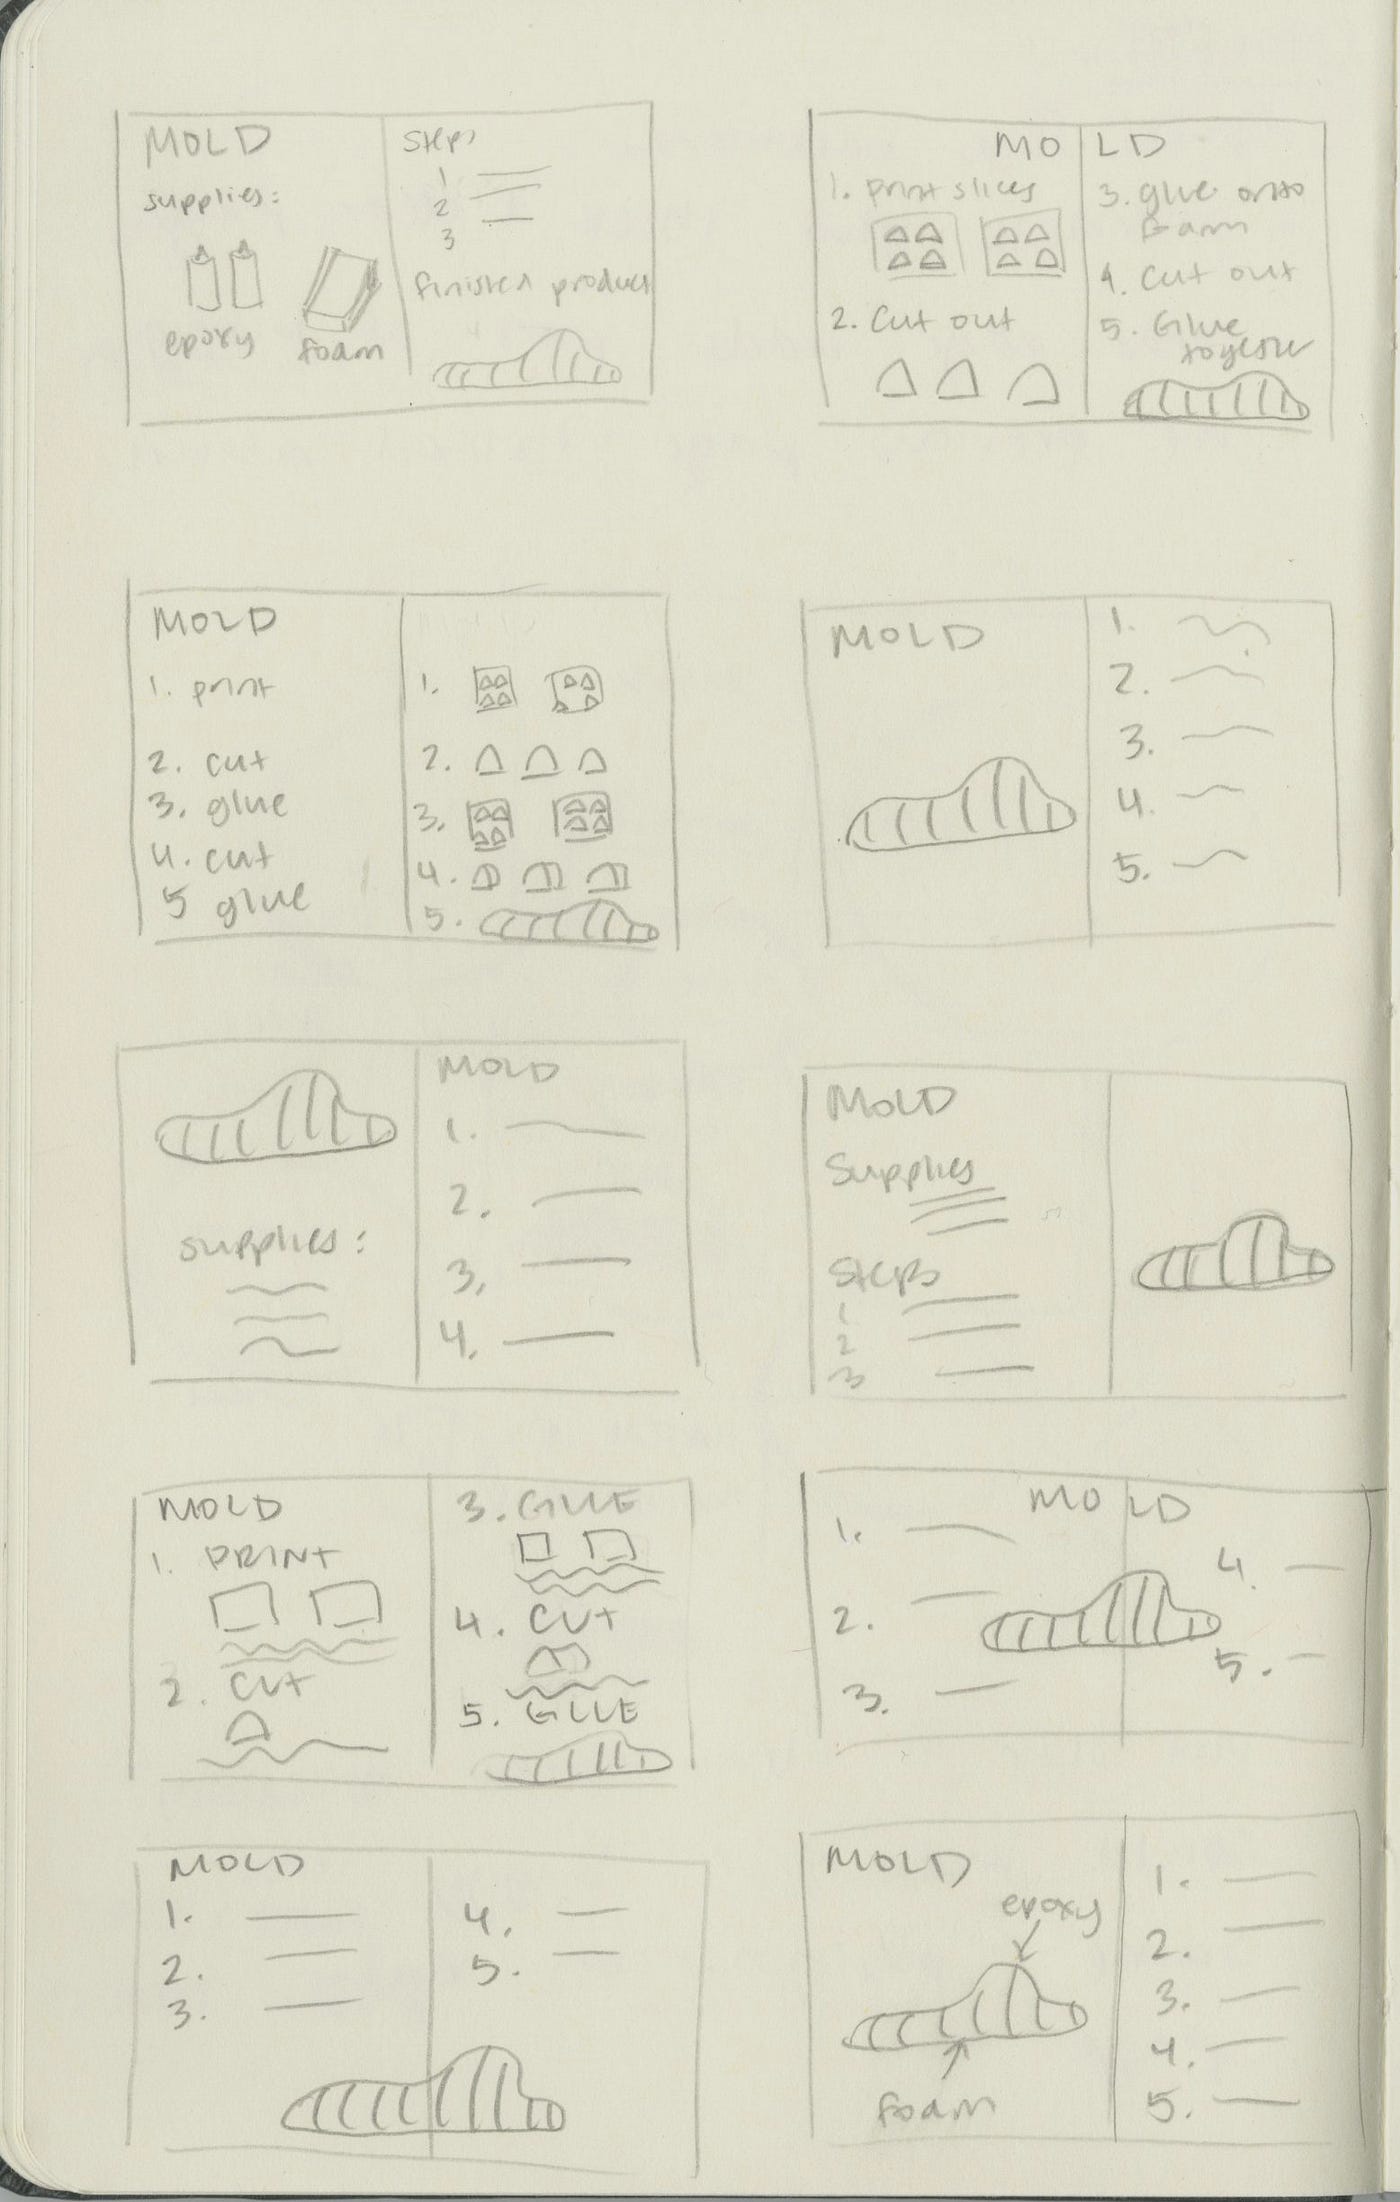 MOLD
supplies:
epoxy
foam
Steps
1
2
3
finished product
MOLD
1. print slices
2. Cut out
3. glue onto
foam
4. Cut out
5. Glue
together
MOLD
1. print
2. cut
3. glue
4. cut
5 glue
1.
2.
3.
4.
5.
MOLD
1.
2.
3.
4.
5.
supplies:
MOLD
1.
2.
3.
4.
MOLD
Supplies
Steps
1
2
3
MOLD
1. PRINT
2. CUT
3. GLUE
4. CUT
5. GLUE
MOLD
1.
2.
3.
4.
5.
MOLD
1.
2.
3.
4.
5.
MOLD
epoxy
foam
1.
2.
3.
4.
5.